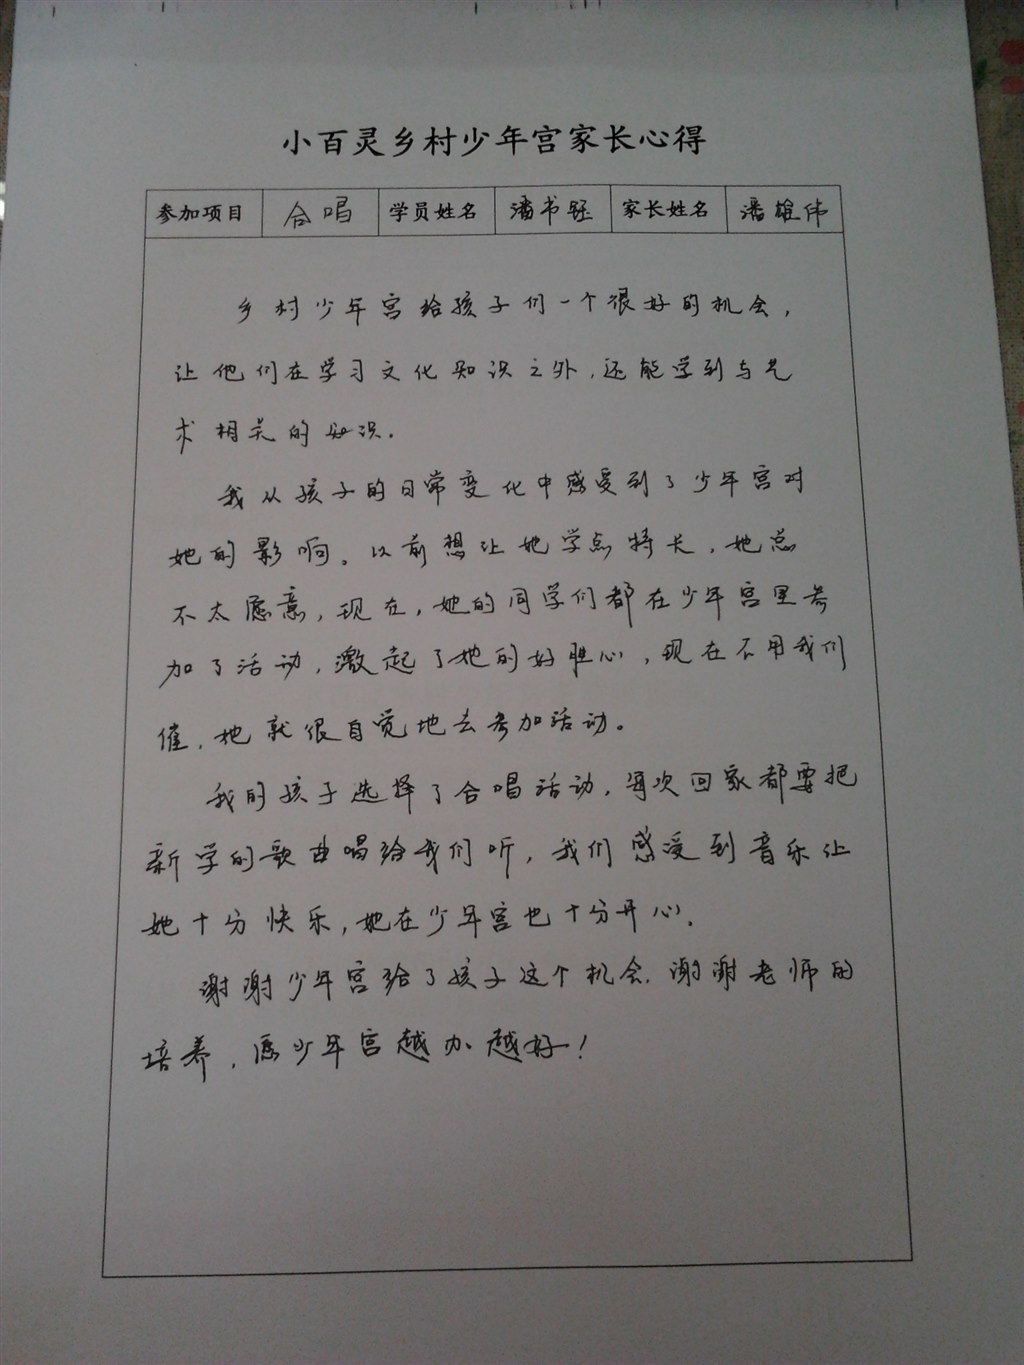 小百灵乡村少年宫家长心得
参加项目 合唱 学员姓名 潘书钰 家长姓名 潘雄伟
乡村少年宫给孩子们一个很好的机会，
让他们在学习文化知识之外，还能学到与艺
术相关的知识。
我从孩子的日常变化中感受到了少年宫对
她的影响。以前想让她学点特长，她总
不太愿意，现在，她的同学们都在少年宫里参
加了活动，激起了她的好胜心，现在不用我们
催，她就很自觉地去参加活动。
我的孩子选择了合唱活动，每次回家都要把
新学的歌曲唱给我们听，我们感受到音乐让
她十分快乐，她在少年宫也十分开心。
谢谢少年宫给了孩子这个机会，谢谢老师的
培养，愿少年宫越办越好！